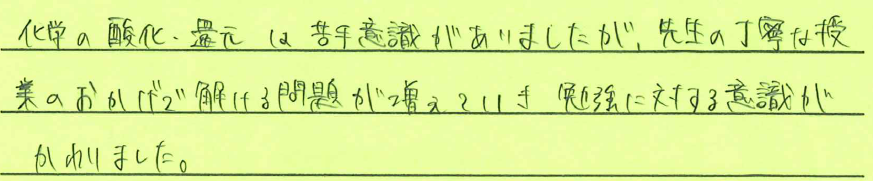 化学の酸化・還元は苦手意識がありましたが、先生の丁寧な授
業のおかげで解ける問題が増えていき 勉強に対する意識が
かわりました。